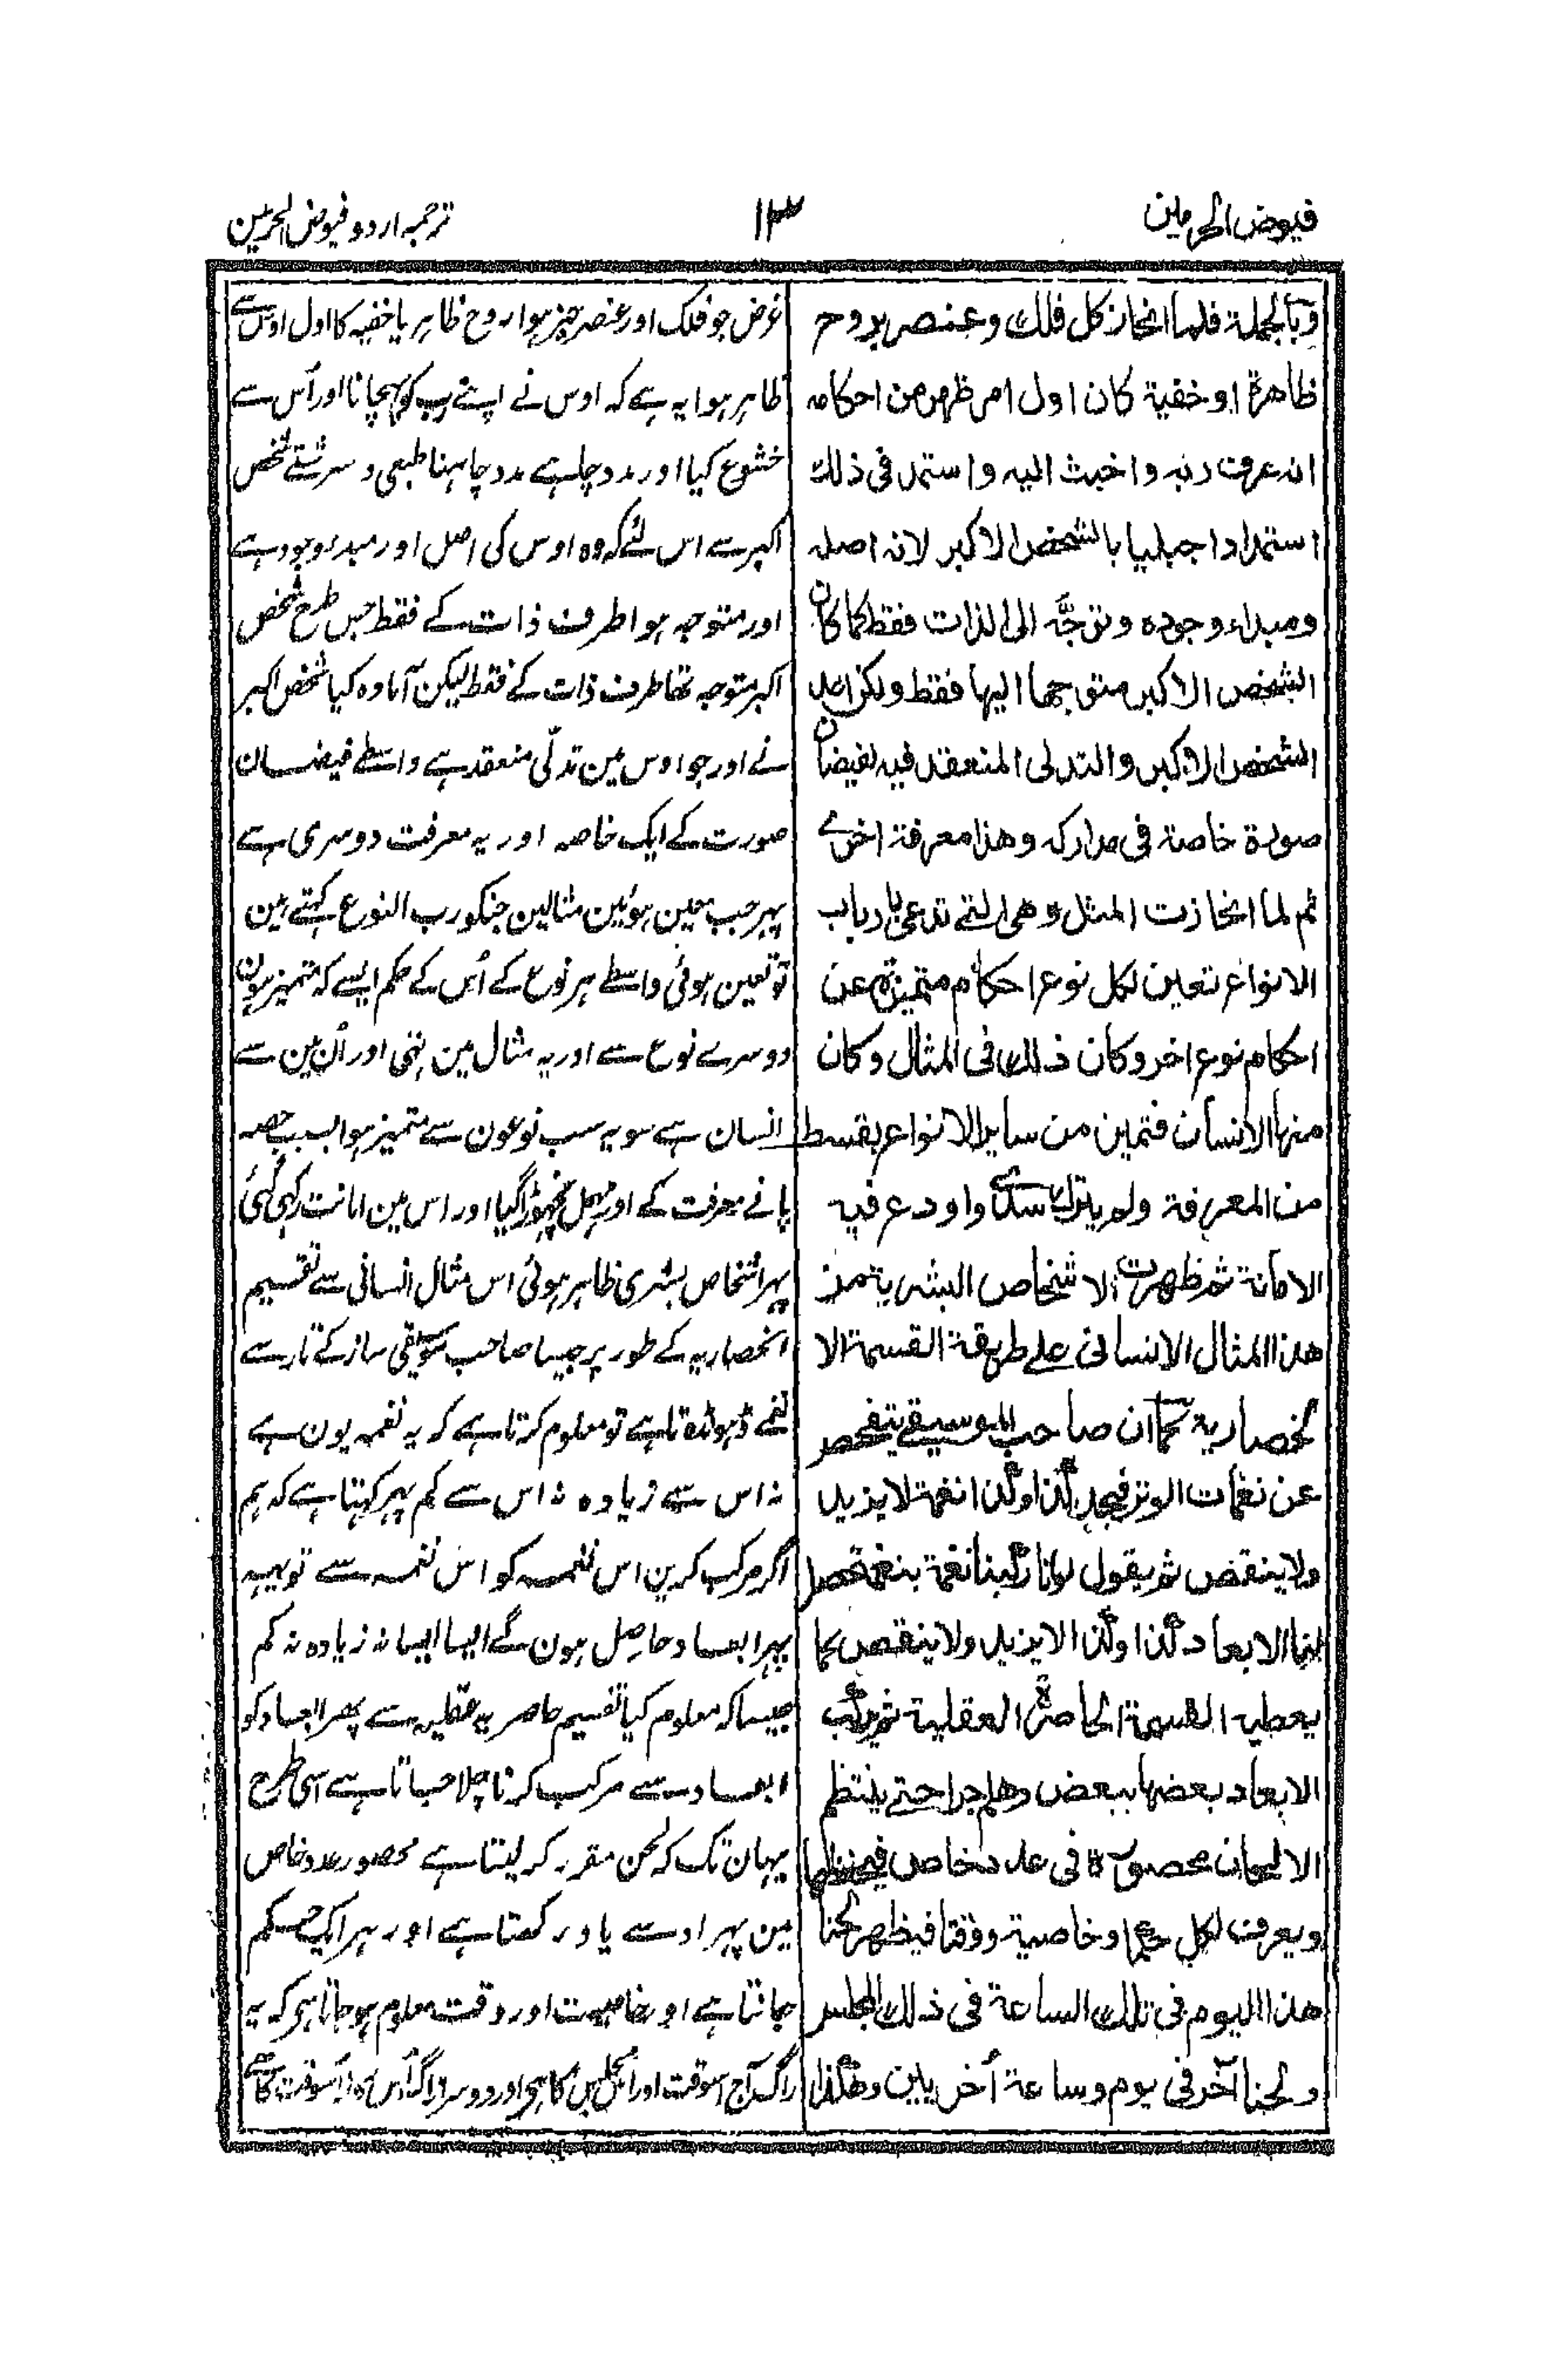 فیوض الحرمین
۱۳
ترجمہ اردو فیوض الحرمین
وبالجملة فلما انحاز كل فلك وعنصر بروح
ظاهرة او خفية كان اول امر ظهر من احكامه
انه عرف ربه واخبث اليه واستمد فى ذلك
استمدادا جبليا بالشخص الاكبر لانه اصله
ومبداء وجوده وتوجَّه الى الذات فقط كما كان
الشخص الاكبر متوجها اليها فقط ولكن اعد
الشخص الاكبر والتدلى المنعقد فيه لفيضان
صورة خاصة فى مداركه وهذا معرفة اخرے
ثم لما انحازت المثل وهى التے تدعى بارباب
الانواع تعين لكل نوع احكام متميزة عن
احكام نوع اخر وكان ذلك فى المثال وكان
منها الانسان فتميز من ساير الانواع بقسط
من المعرفة ولم يترك سدى واودع فيه
الامانة ثم ظهرت الاشخاص البشرية من
هذا المثال الانسانى علے طريقة القسمة الا
نحصارية كما ان صاحب الموسيقے يتفحص
عن نغمات الوتر فيجد كذا وكذا نغمة لا يزيد
ولا ينقص ثم يقول لو انا ركبنا نغمة بنغمة حصل
لنا الابعاد كذا وكذا لا يزيد ولا ينقص كما
يعطيه القسمة الحاصرة العقلية ثم يركب
الابعاد بعضها ببعض وهلم جرا حتے ينتظم
الالحان محصورة فى عدد خاص فيحفظها
ويعرف لكل حكما وخاصية ووقتا فيظهر لحنا
هذا اليوم فى تلك الساعة فى ذلك المجلس
ولحنا آخر فى يوم وساعة أخريين وهكذا
غرض جو فلک اور عنصر چیز ہوا روح ظاہر یا خفیہ کا اول اوس سے
ظاہر ہوا یہ ہے کہ اوس نے اپنے رب کو پہچانا اور اُس سے
خشوع کیا اور مدد چاہے مدد چاہنا طبعی و سرشتے شخص
اکبر سے اس لئے کہ وہ اوس کی اصل اور مبدء وجود ہے
اور متوجہ ہوا طرف ذات کے فقط جس طرح شخص
اکبر متوجہ تھا طرف ذات کے فقط لیکن آمادہ کیا شخص اکبر
نے اور جو اوس مین تدلّی منعقد ہے واسطے فیضان
صورت کے ایک خاصہ اور یہ معرفت دوسری ہے
پہر جب معین ہوئین مثالین جنکو رب النوع کہتے ہین
تو تعین ہوئی واسطے ہر نوع کے اُس کے حکم ایسے کہ متمیز ہون
دوسرے نوع سے اور یہ مثال مین تہی اور اُن مین سے
انسان ہے سو یہ سب نوعون سے متمیز ہوا بسبب حصہ
پانے معرفت کے اور مہمل نچہوڑا گیا اور اس مین امانت رکہی گئی
پہر اشخاص بشری ظاہر ہوئی اس مثال انسانی سے تقسیم
انحصاریہ کے طور پر جیسا صاحب موسیقی ساز کے تار سے
نغمے ڈہونڈتا ہے تو معلوم کرتا ہے کہ یہ نغمہ یون ہے
نہ اس سے زیادہ نہ اس سے کم پہر کہتا ہے کہ ہم
اگر مرکب کرین اس نغمہ کو اس نغمہ سے تو یہہ
پہر ابعاد حاصل ہون گے ایسا ایسا نہ زیادہ نہ کم
جیسا کہ معلوم کیا تقسیم حاصریہ عقلیہ سے پھر ابعاد کو
ابعاد سے مرکب کرتا چلا جاتا ہے اسی طرح
یہان تک کہ لحن مقرر کر لیتا ہے محصور عدد خاص
مین پہر اوسے یاد رکھتا ہے اور ہر ایک حکم
جانتا ہے اور خاصیت اور وقت معلوم ہو جاتا ہی کہ یہ
راگ آج اسوقت اور اس مجلس مین کا ہی اور دوسرا راگ اُس اور اُسوقت کا ہے